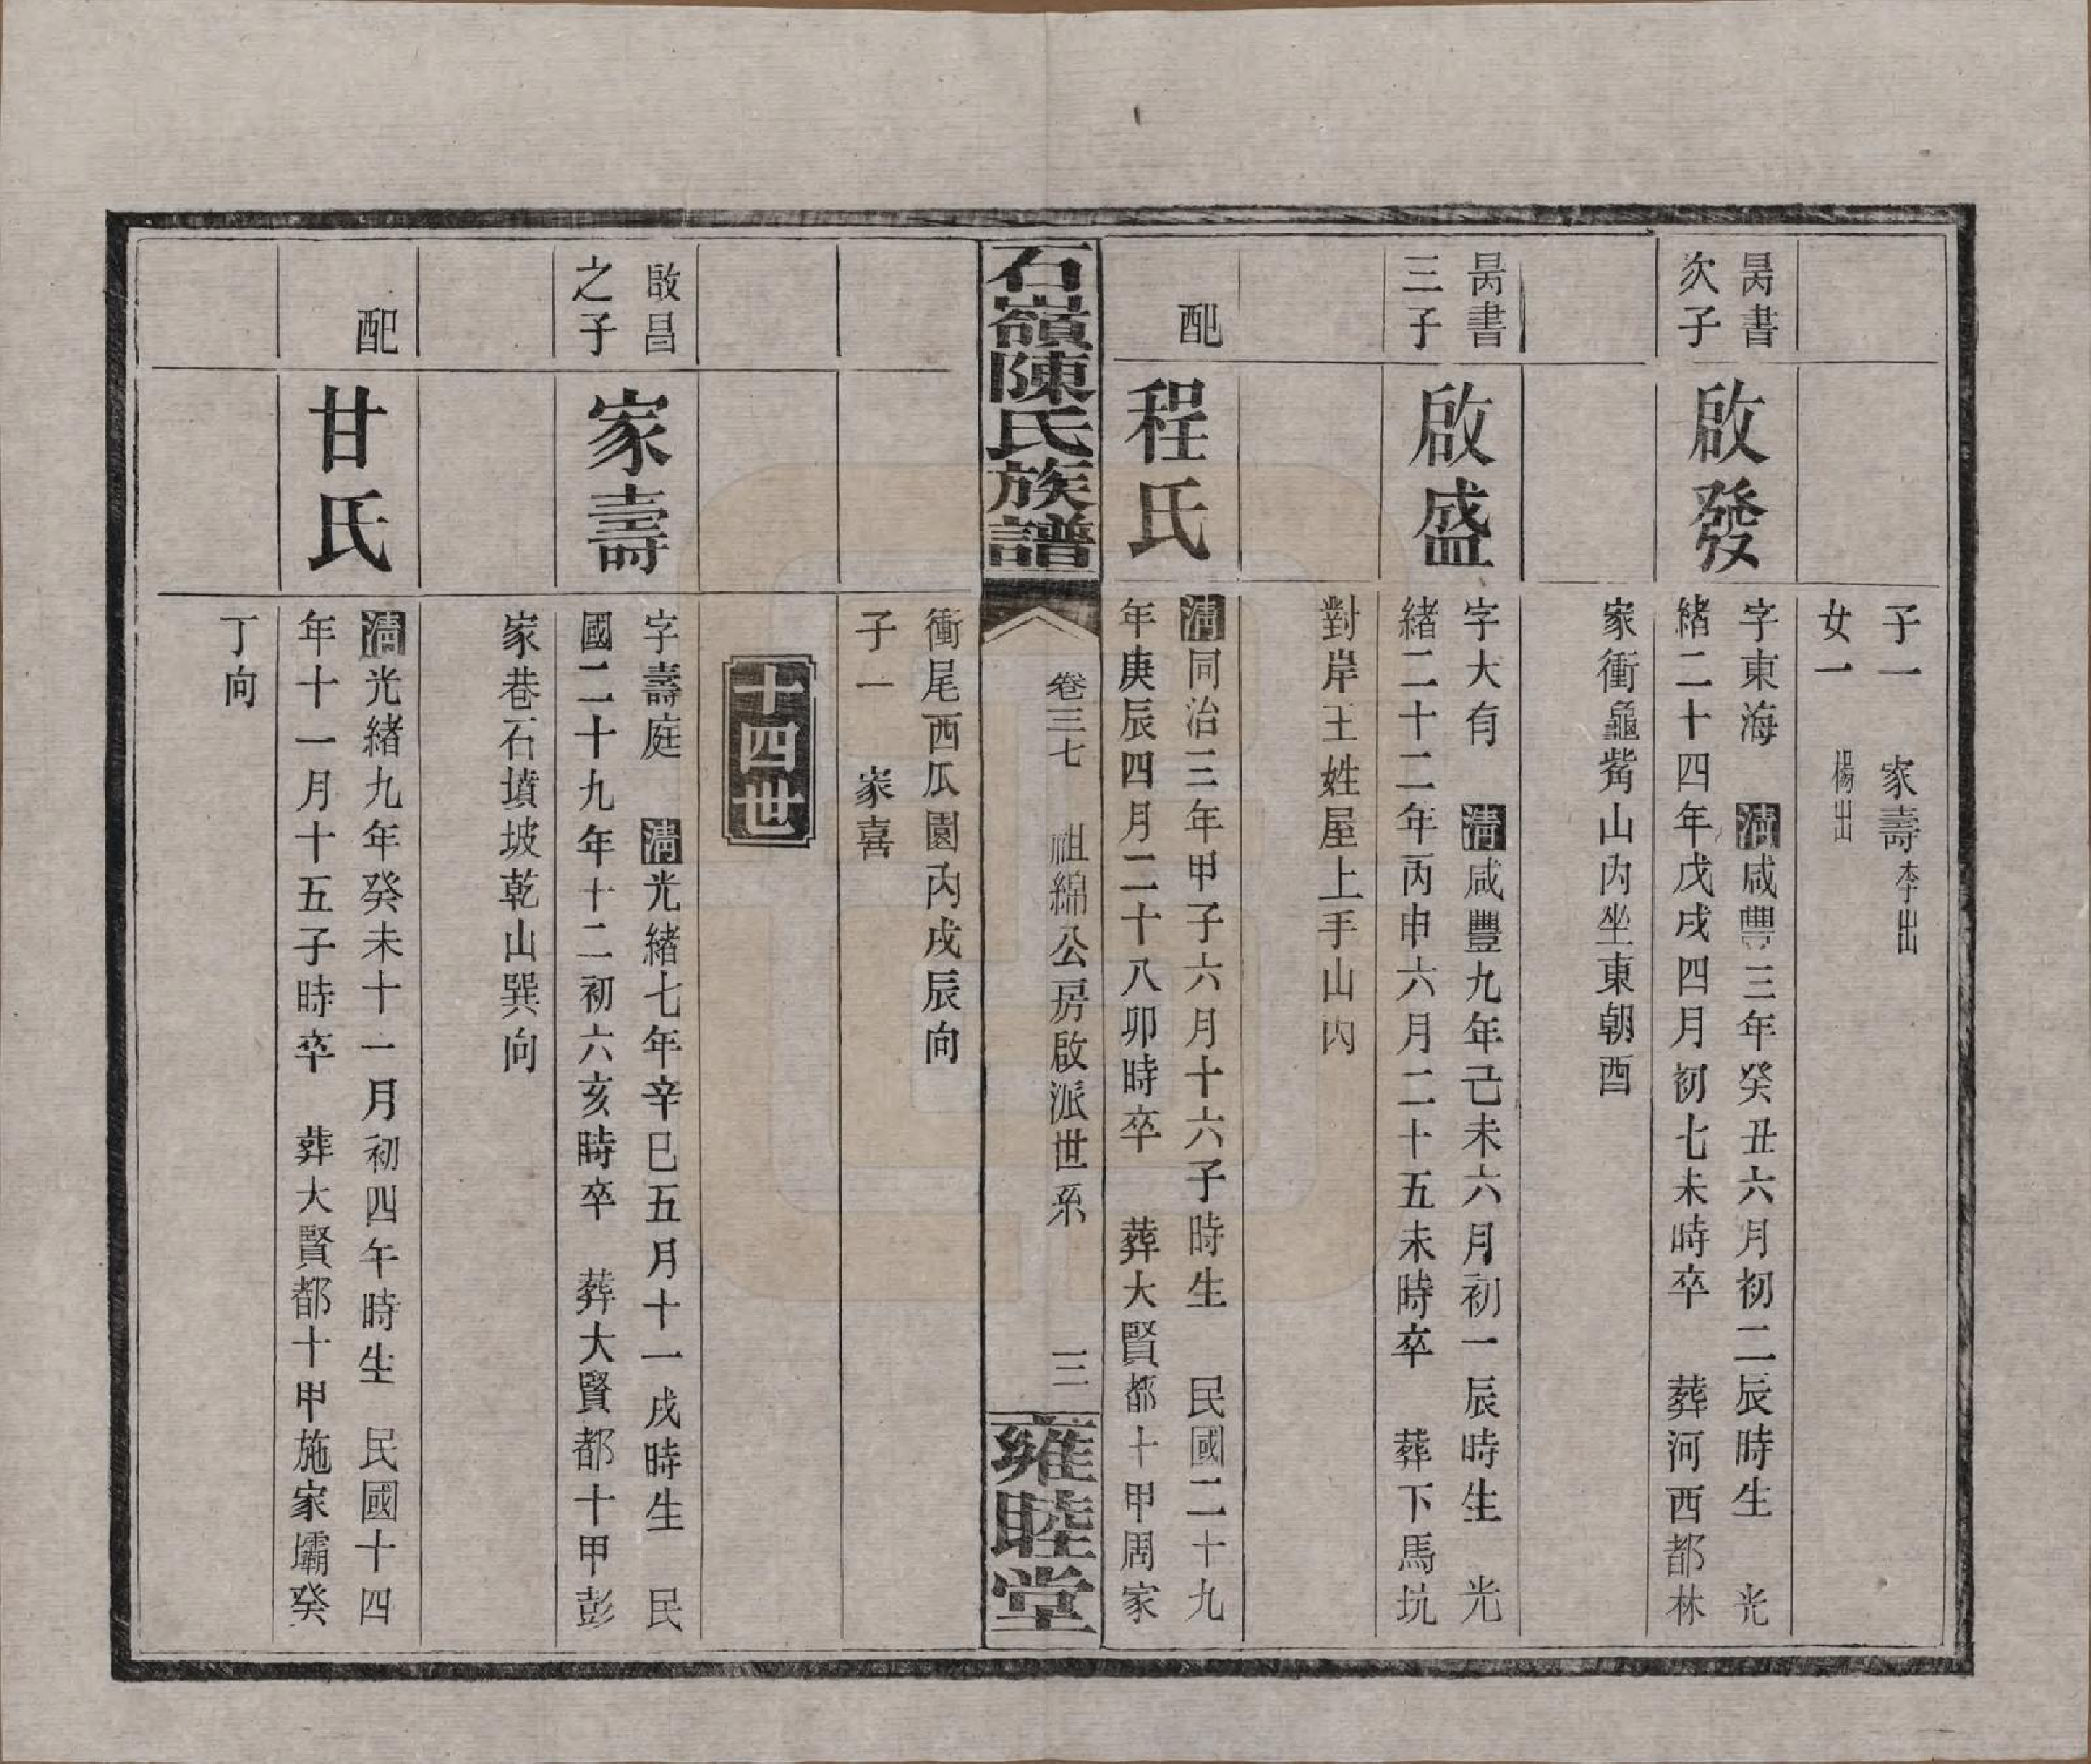 子一　家壽李出
女一　楊出
昺書
次子
啟發
字東海　清咸豐三年癸丑六月初二辰時生　光
緒二十四年戊戌四月初七未時卒　葬河西都林
家衝龜觜山內坐東朝酉
昺書
三子
啟盛
字大有　清咸豐九年己未六月初一辰時生　光
緒二十二年丙申六月二十五未時卒　葬下馬坑
對岸王姓屋上手山內
配
程氏
清同治三年甲子六月十六子時生　民國二十九
年庚辰四月二十八卯時卒　葬大賢都十甲周家
石嶺陳氏族譜
卷三七　祖綿公房啟派世系
三
雍睦堂
衝尾西瓜園內戌辰向
子一　家喜
十四世
啟昌
之子
家壽
字壽庭　清光緒七年辛巳五月十一戌時生　民
國二十九年十二初六亥時卒　葬大賢都十甲彭
家巷石墳坡乾山巽向
配
甘氏
清光緒九年癸未十一月初四午時生　民國十四
年十一月十五子時卒　葬大賢都十甲施家壩癸
丁向